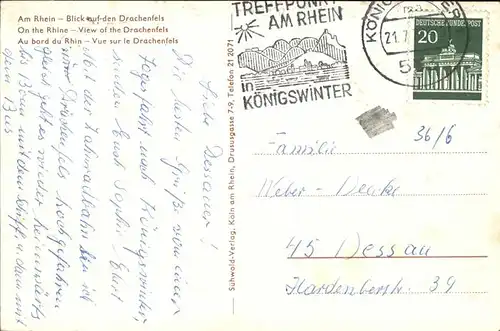 Am Rhein – Blick auf den Drachenfels
On the Rhine – View of the Drachenfels
Au bord du Rhin – Vue sur le Drachenfels
Liebe Dessauer!
Die besten Grüße von einer
Tagesfahrt nach Königswinter,
senden Euch Sophie – Ehart
Mit der Zahnradbahn sind wir
zum Drachenfels hochgefahren
Jetzt geht es wieder heimwärts
bis Bonn mit dem Schiff u. dann mit
dem Bus
Sühwold-Verlag, Köln am Rhein, Drususgasse 7-9, Telefon 21 20 71
TREFFPUNKT
AM RHEIN
in
KÖNIGSWINTER
21.7
5
DEUTSCHE BUNDESPOST
20
36/6
Familie
Weber-Deicke
45 Dessau
Hardenberstr. 39